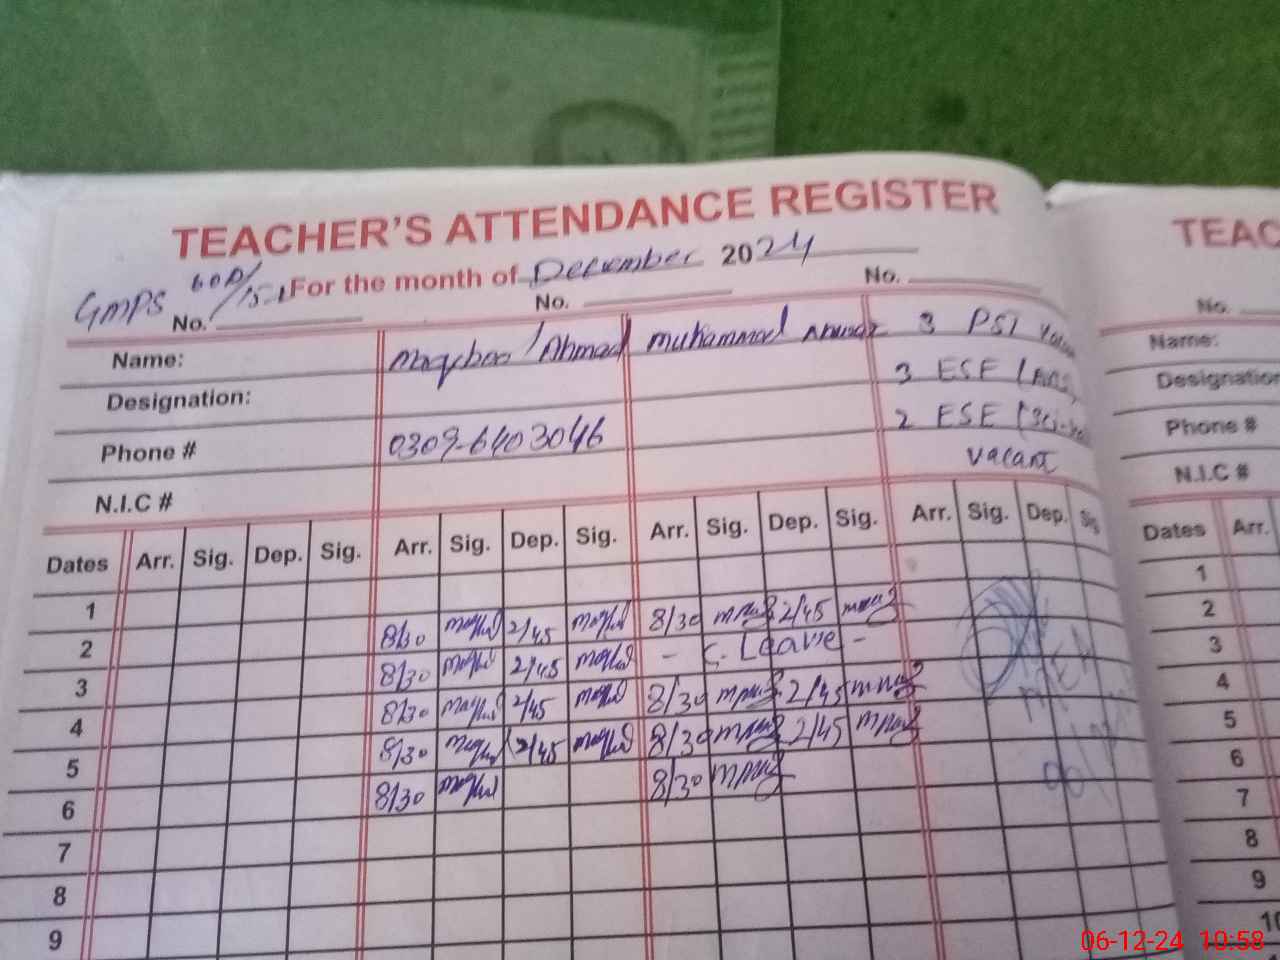 TEACHER'S ATTENDANCE REGISTER
GMPS 60D/15-L For the month of December 2024
No. No. No.
Name: Maqbool Ahmad Muhammad Anwar 3 PST
Designation: 3 ESE (Arts)
Phone # 0309-6403046 2 ESE
vacant
N.I.C #
Dates Arr. Sig. Dep. Sig. Arr. Sig. Dep. Sig. Arr. Sig. Dep. Sig. Arr. Sig. Dep. Sig
1
2 8/30 2/45 8/30 2/45
3 8/30 2/45 - C. Leave -
4 8/30 2/45 8/30 2/45
5 8/30 2/45 8/30 2/45
6 8/30 8/30
7
8
9
TEAC
No.
Name:
Designation
Phone #
N.I.C #
Dates Arr.
1
2
3
4
5
6
7
8
9
10
06-12-24 10:58